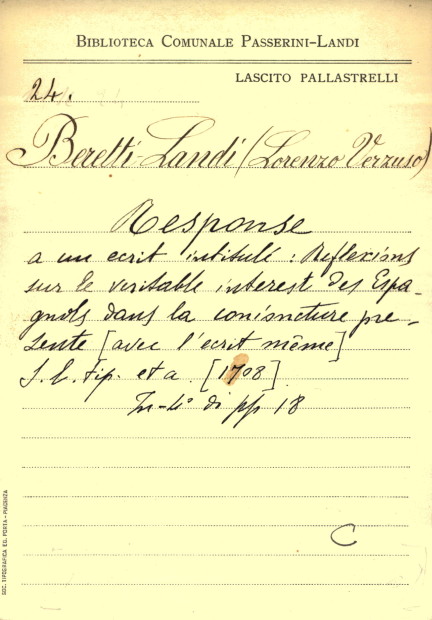 BIBLIOTECA COMUNALE PASSERINI-LANDI
LASCITO PALLASTRELLI
24.
Beretti-Landi (Lorenzo Verzuso)
Response
a un ecrit intitulé: Reflexions
sur le veritable interest des Espa-
gnols dans la conioncture pre-
sente [avec l'écrit même]
S. l. tip. et a. [1708]
In-4° di pp 18
C
SOC. TIPOGRAFICA ED. PORTA - PIACENZA